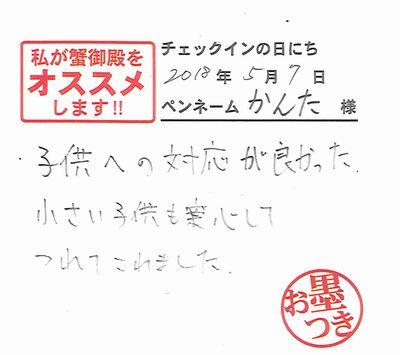 私が蟹御殿を
オススメ
します!!
チェックインの日にち
2018年5月7日
ペンネーム かんた 様
・子供への対応が良かった.
小さい子供も安心して
つれてこれました.
お墨つき